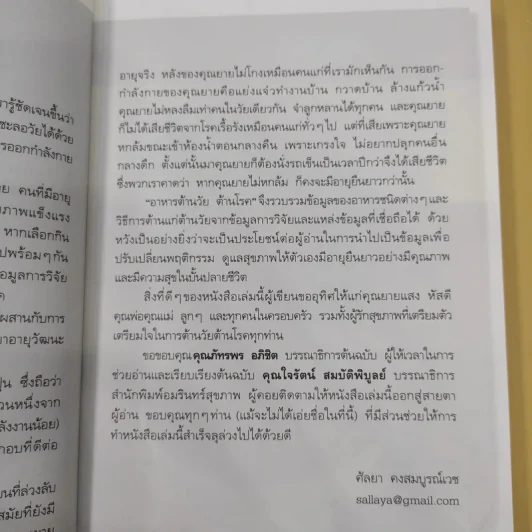 รู้ชัดเจนขึ้นว่า
ชะลอวัยได้ด้วย
รออกกำลังกาย
คนที่มีอายุ
ภาพแข็งแรง
หากเลือกกิน
ปพร้อมๆกัน
อมูลการวิจัย
ผสานกับการ
าอายุวัฒนะ
ซึ่งถือว่า
วนหนึ่งจาก
ลังงานน้อย)
กอบที่ดีต่อ
นที่ล่วงลับ
มัยที่ยังมี
อายุจริง หลังของคุณยายไม่โกงเหมือนคนแก่ที่เรามักเห็นกัน การออก-
กำลังกายของคุณยายคือแย่งแจ๋วทำงานบ้าน กวาดบ้าน ล้างแก้วน้ำ
คุณยายไม่หลงลืมเท่าคนในวัยเดียวกัน จำลูกหลานได้ทุกคน และคุณยาย
ก็ไม่ได้เสียชีวิตจากโรคเรื้อรังเหมือนคนแก่ทั่วๆไป แต่ที่เสียเพราะคุณยาย
หกล้มขณะเข้าห้องน้ำตอนกลางคืน เพราะเกรงใจ ไม่อยากปลุกคนอื่น
กลางดึก ตั้งแต่นั้นมาคุณยายก็ต้องนั่งรถเข็นเป็นเวลาปีกว่าจึงได้เสียชีวิต
ซึ่งพวกเราคาดว่า หากคุณยายไม่หกล้ม ก็คงจะมีอายุยืนยาวกว่านั้น
“อาหารต้านวัย ต้านโรค” จึงรวบรวมข้อมูลของอาหารชนิดต่างๆและ
วิธีการต้านแก่ต้านวัยจากข้อมูลการวิจัยและแหล่งข้อมูลที่เชื่อถือได้ ด้วย
หวังเป็นอย่างยิ่งว่าจะเป็นประโยชน์ต่อผู้อ่านในการนำไปเป็นข้อมูลเพื่อ
ปรับเปลี่ยนพฤติกรรม ดูแลสุขภาพให้ตัวเองมีอายุยืนยาวอย่างมีคุณภาพ
และมีความสุขในบั้นปลายชีวิต
สิ่งที่ดีๆของหนังสือเล่มนี้ผู้เขียนขออุทิศให้แก่คุณยายแสง หัสดี
คุณพ่อคุณแม่ ลูกๆ และทุกคนในครอบครัว รวมทั้งผู้รักสุขภาพที่เตรียมตัว
เตรียมใจในการต้านวัยต้านโรคทุกท่าน
ขอขอบคุณคุณภัทรพร อภิชิต บรรณาธิการต้นฉบับ ผู้ให้เวลาในการ
ช่วยอ่านและเรียบเรียงต้นฉบับ คุณใจรัตน์ สมบัติพิบูลย์ บรรณาธิการ
สำนักพิมพ์อมรินทร์สุขภาพ ผู้คอยติดตามให้หนังสือเล่มนี้ออกสู่สายตา
ผู้อ่าน ขอบคุณทุกๆท่าน (แม้จะไม่ได้เอ่ยชื่อในที่นี้) ที่มีส่วนช่วยให้การ
ทำหนังสือเล่มนี้สำเร็จลุล่วงไปได้ด้วยดี
ศัลยา คงสมบูรณ์เวช
sallaya@gmail.com